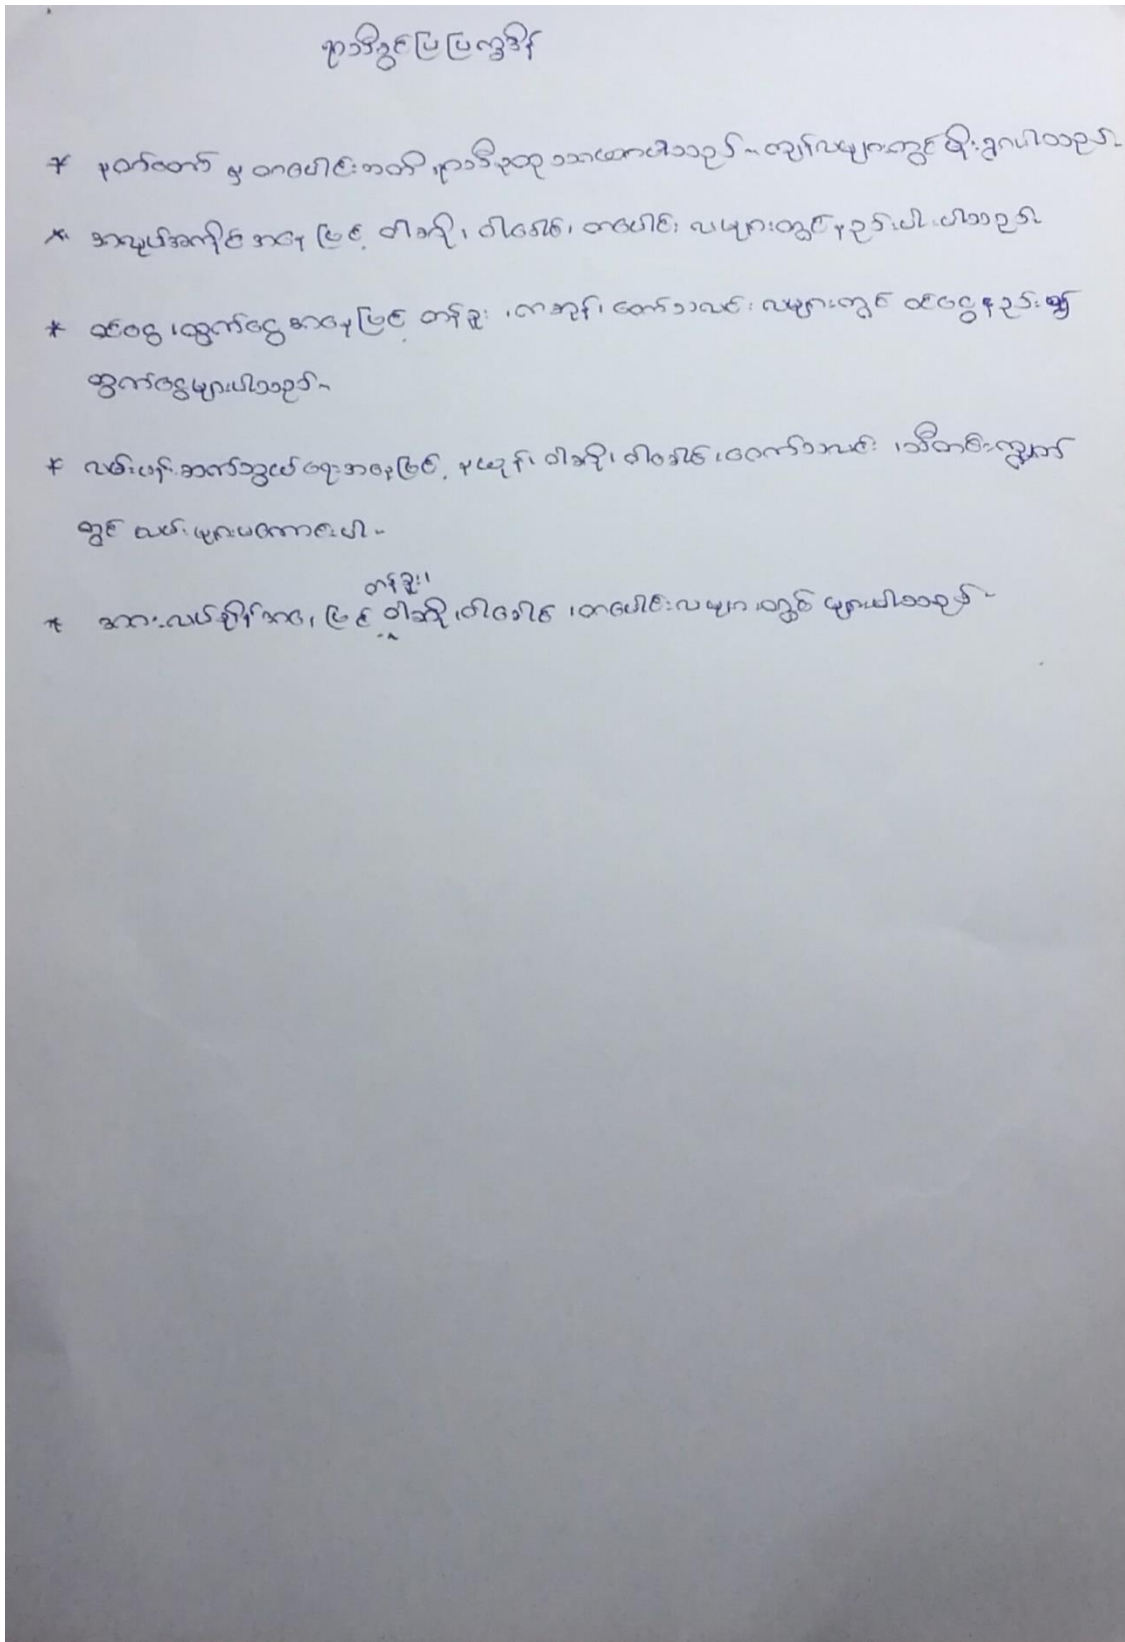 ရာသီခွင်ပြပြက္ခဒိန်
* နတ်တော် မှ တပေါင်းအထိ ရာသီဥတု သာယာပါသည်။ ကျန်လများတွင် မိုးရွာပါသည်။
* အလုပ်အကိုင် အနေ ဖြင့် ဝါဆို၊ ဝါခေါင်၊ တပေါင်း လများတွင် နည်းပါးပါသည်။
* ဝင်ငွေ ၊ ထွက်ငွေ အနေဖြင့် တန်ခူး ၊ ကဆုန်၊ တော်သလင်း လများတွင် ဝင်ငွေနည်း၍
ထွက်ငွေများပါသည်။
* လမ်းပန်းဆက်သွယ်ရေးအနေဖြင့် နယုန်၊ ဝါဆို၊ ဝါခေါင် ၊ တော်သလင်း ၊ သီတင်းကျွတ်
တွင် လမ်းများမကောင်းပါ။
* အားလပ်ချိန် အနေ ဖြင့် တန်ခူး၊ ဝါဆို ၊ ဝါခေါင် ၊ တပေါင်း လများတွင် များပါသည်။